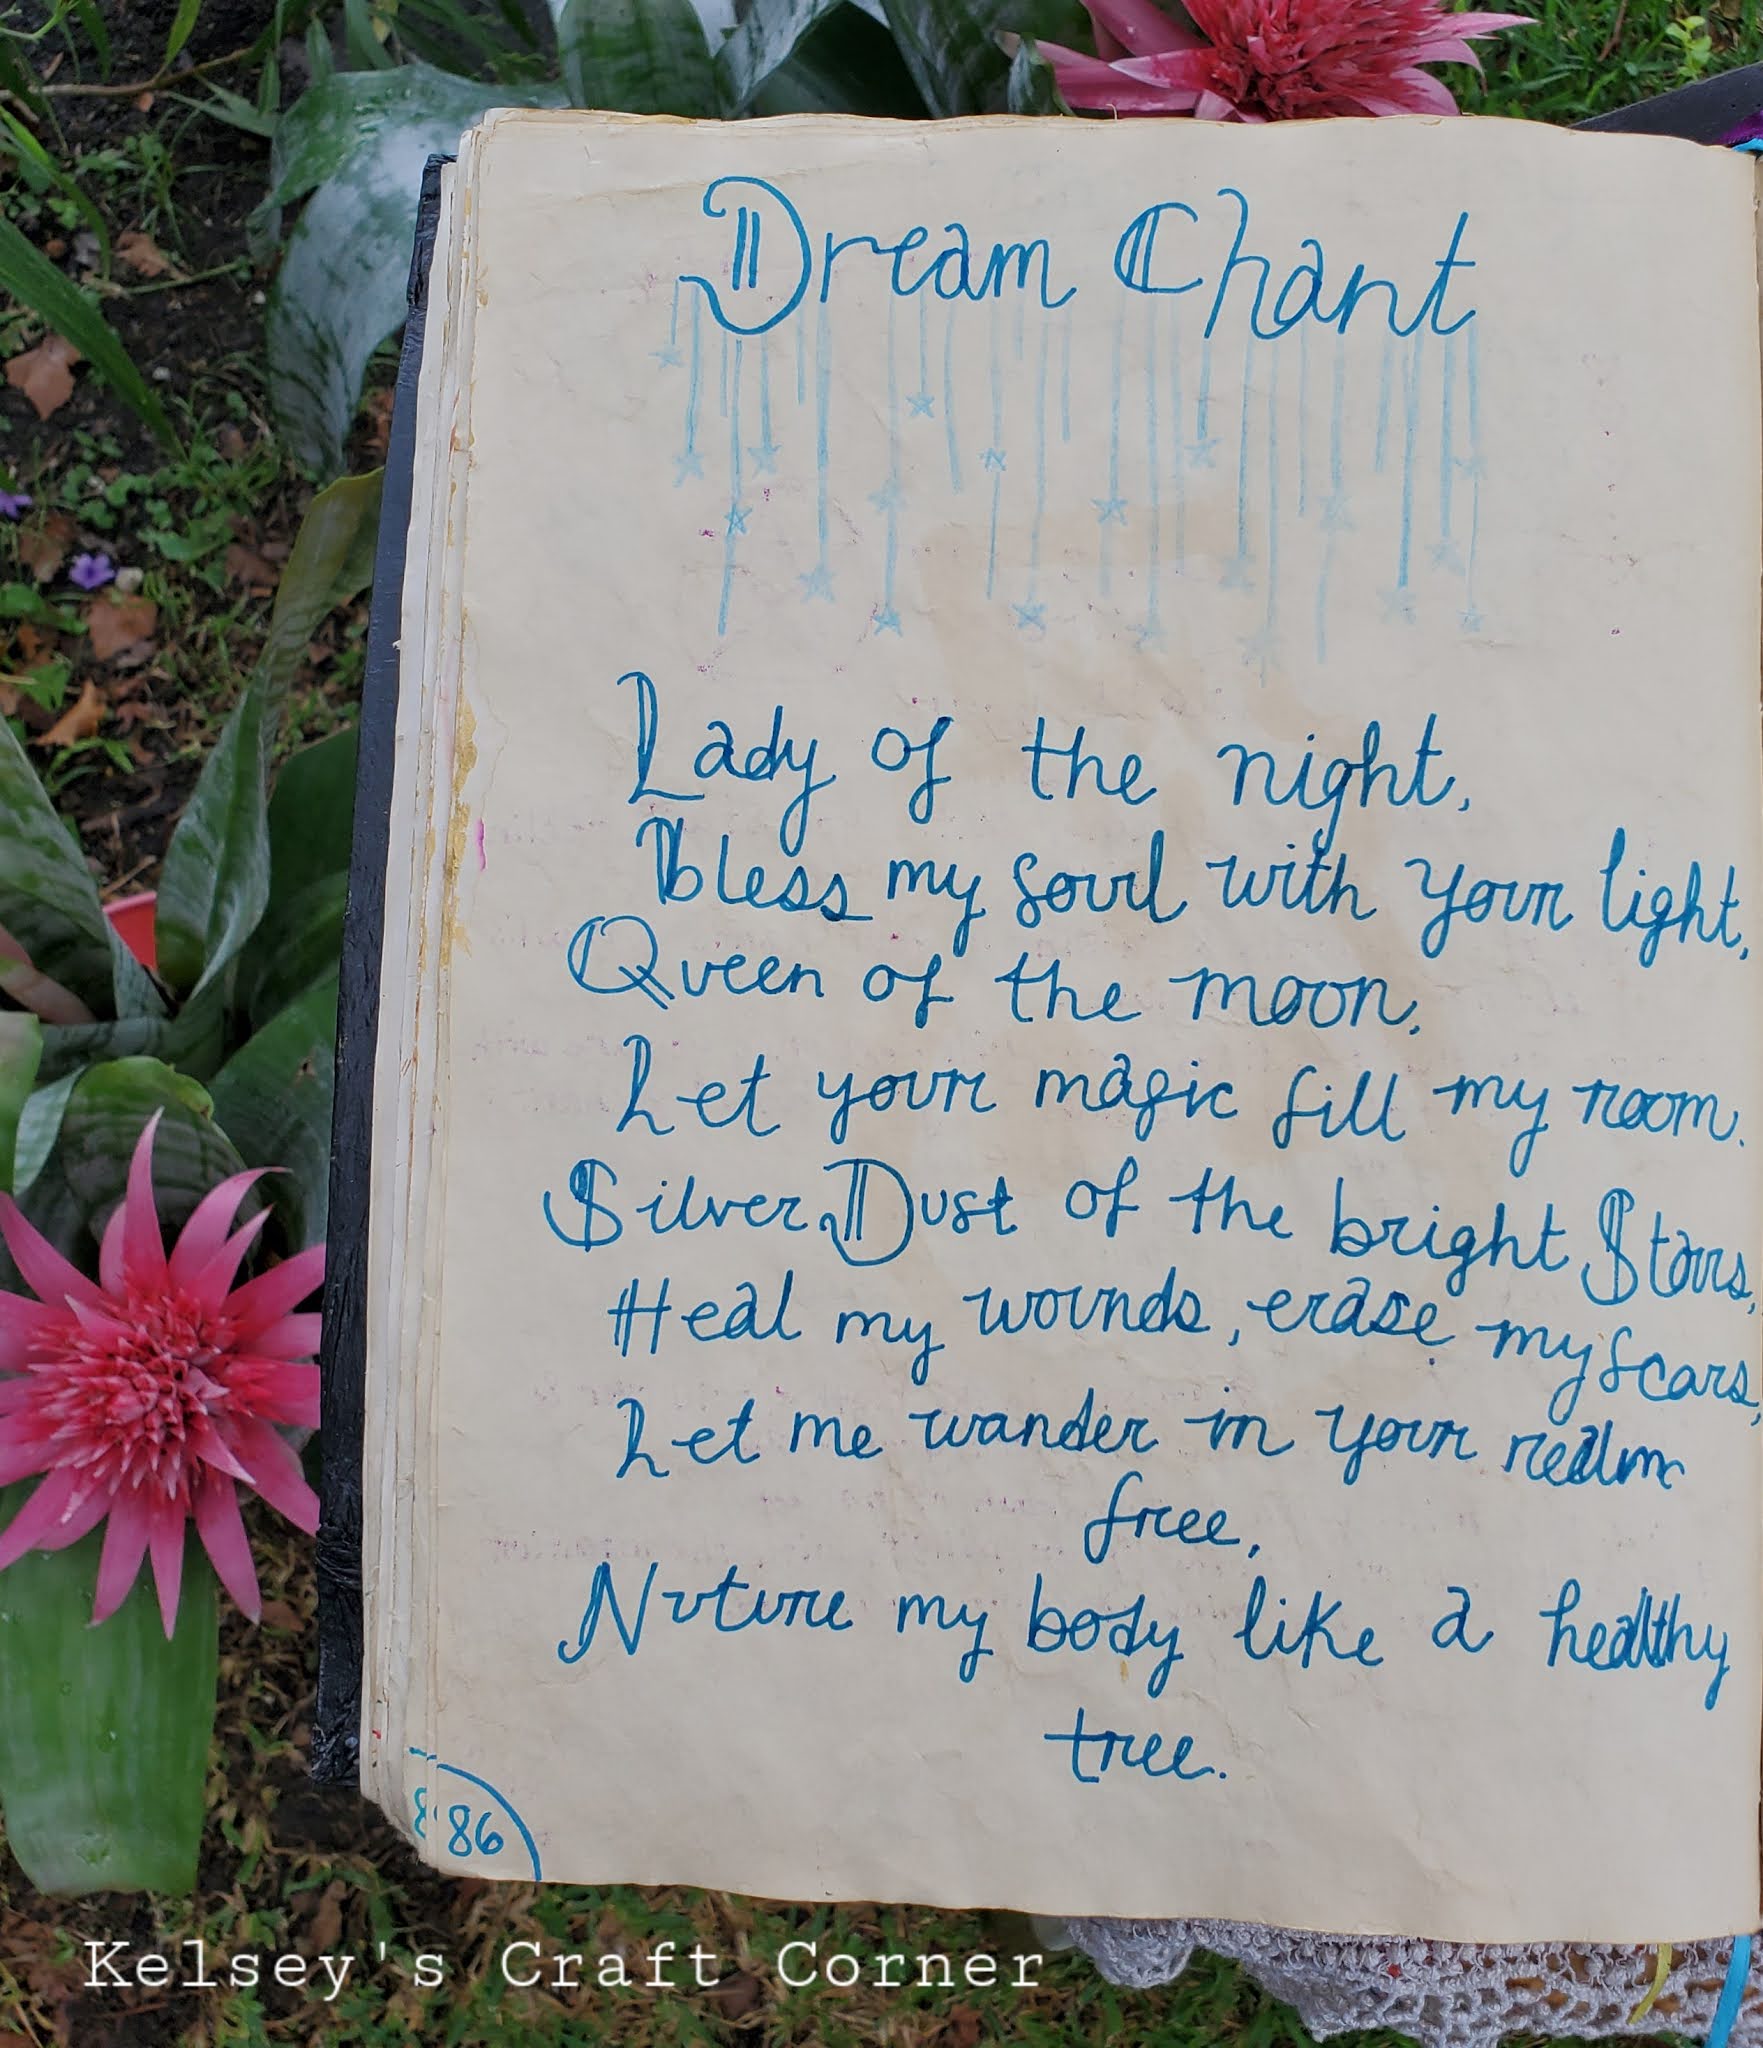 Dream Chant
Lady of the night,
Bless my soul with your light,
Queen of the moon,
Let your magic fill my room.
Silver Dust of the bright Stars,
Heal my wounds, erase my scars,
Let me wander in your realm
free,
Nuture my body like a healthy
tree.
86
Kelsey's Craft Corner